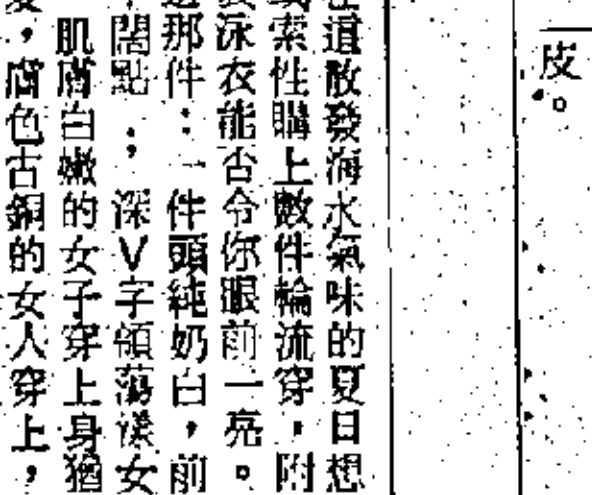 皮。
這散發海水氣味的夏日想
索性購上數件輪流穿，附
泳衣能否令你眼前一亮。
那件：一件頭純奶白，前
闊點；深V字領蕩漾女
肌膚白嫩的女子穿上身猶
，膚色古銅的女人穿上，